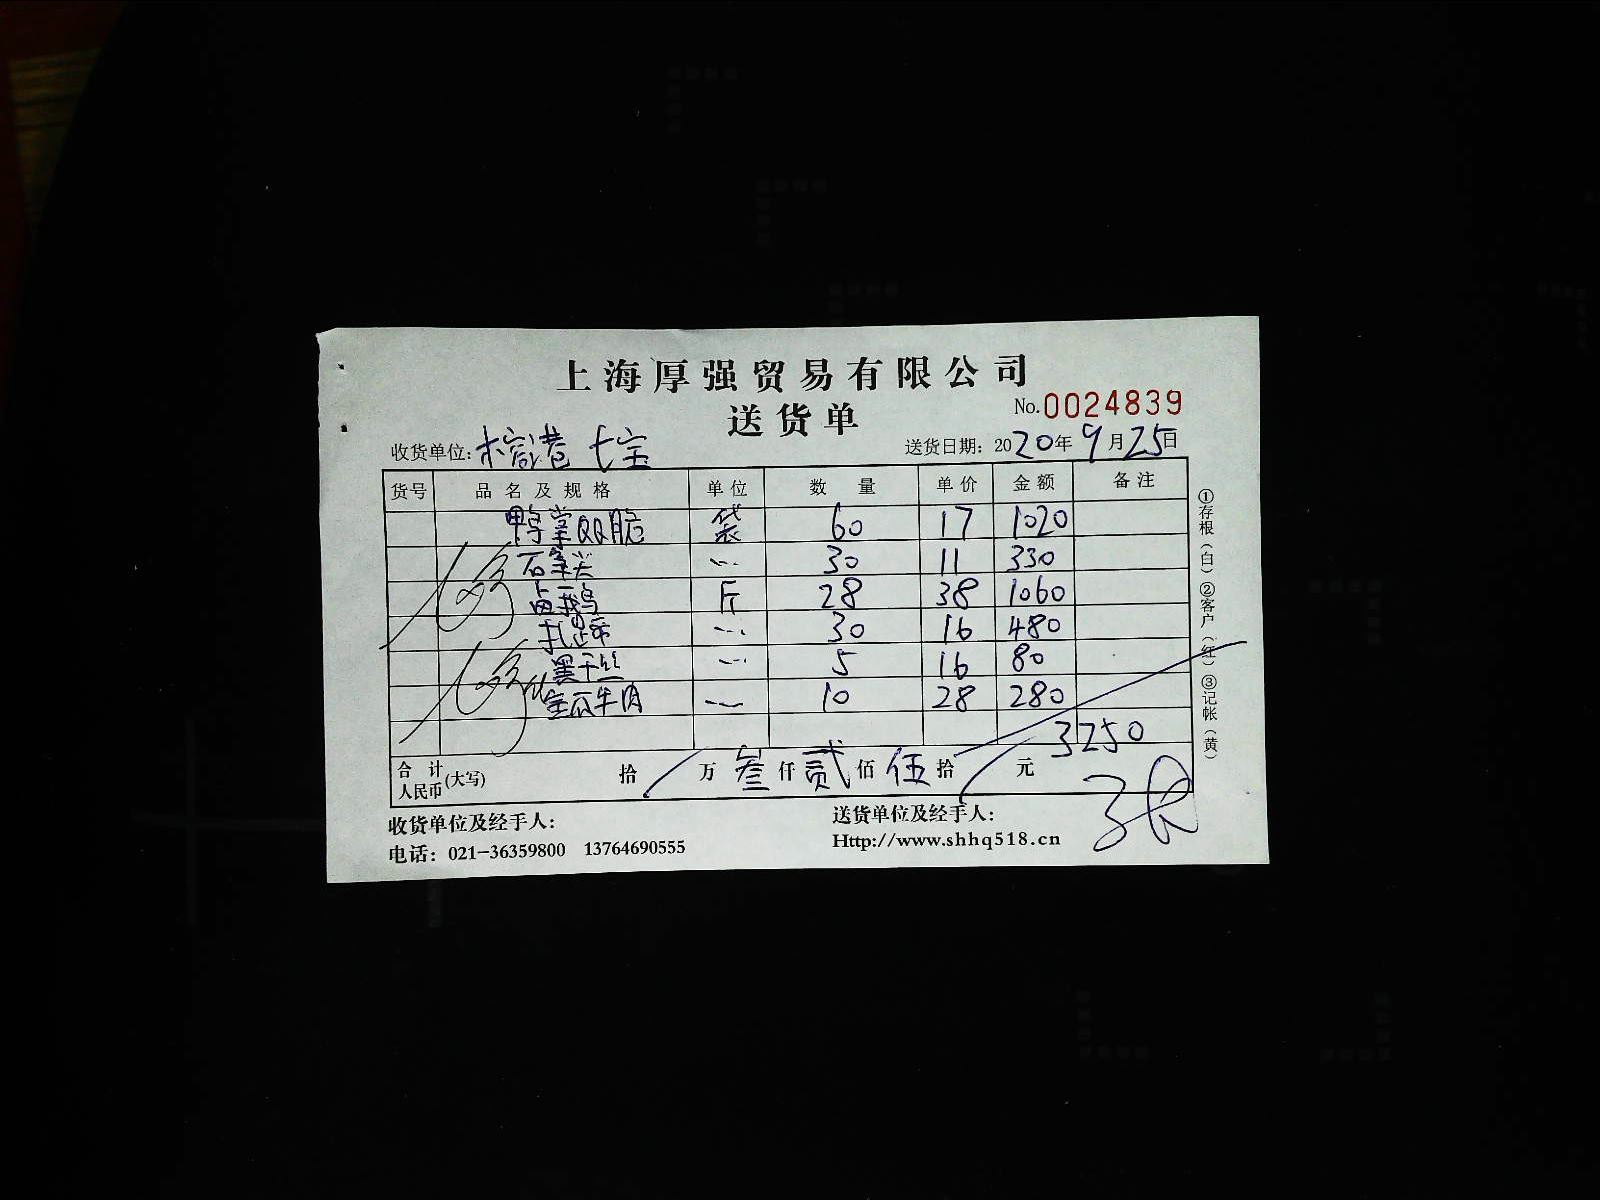 上海厚强贸易有限公司
送货单 No.0024839
收货单位: 榕港 七宝 送货日期: 2020年9月25日
货号 品名及规格 单位 数量 单价 金额 备注
鸭掌QQ脆 袋 60 17 1020
石笋尖 〃 30 11 330
卤鹅 斤 28 38 1060
扎蹄 〃 30 16 480
黑干丝 〃 5 16 80
金瓜牛肉 〃 10 28 280
3250
合计人民币(大写) 拾 / 万 叁 仟 贰 佰 伍 拾 / 元
收货单位及经手人: 送货单位及经手人:
电话: 021-36359800 13764690555 Http://www.shhq518.cn
①存根(白)②客户(红)③记帐(黄)